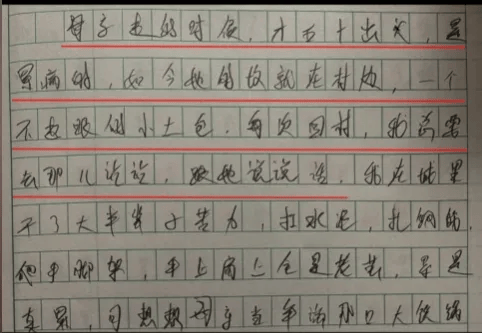 母亲走的时候，才五十出头，是
累病的，如今她的坟就在村边，一个
不起眼的小土包。每次回村，我总要
去那儿，跟她说说话。我在城里
干了大半辈子苦力，扛水泥，扎钢筋，
爬脚架，手上肩上全是老茧，累是
真累，可想想母亲当年那口大锅